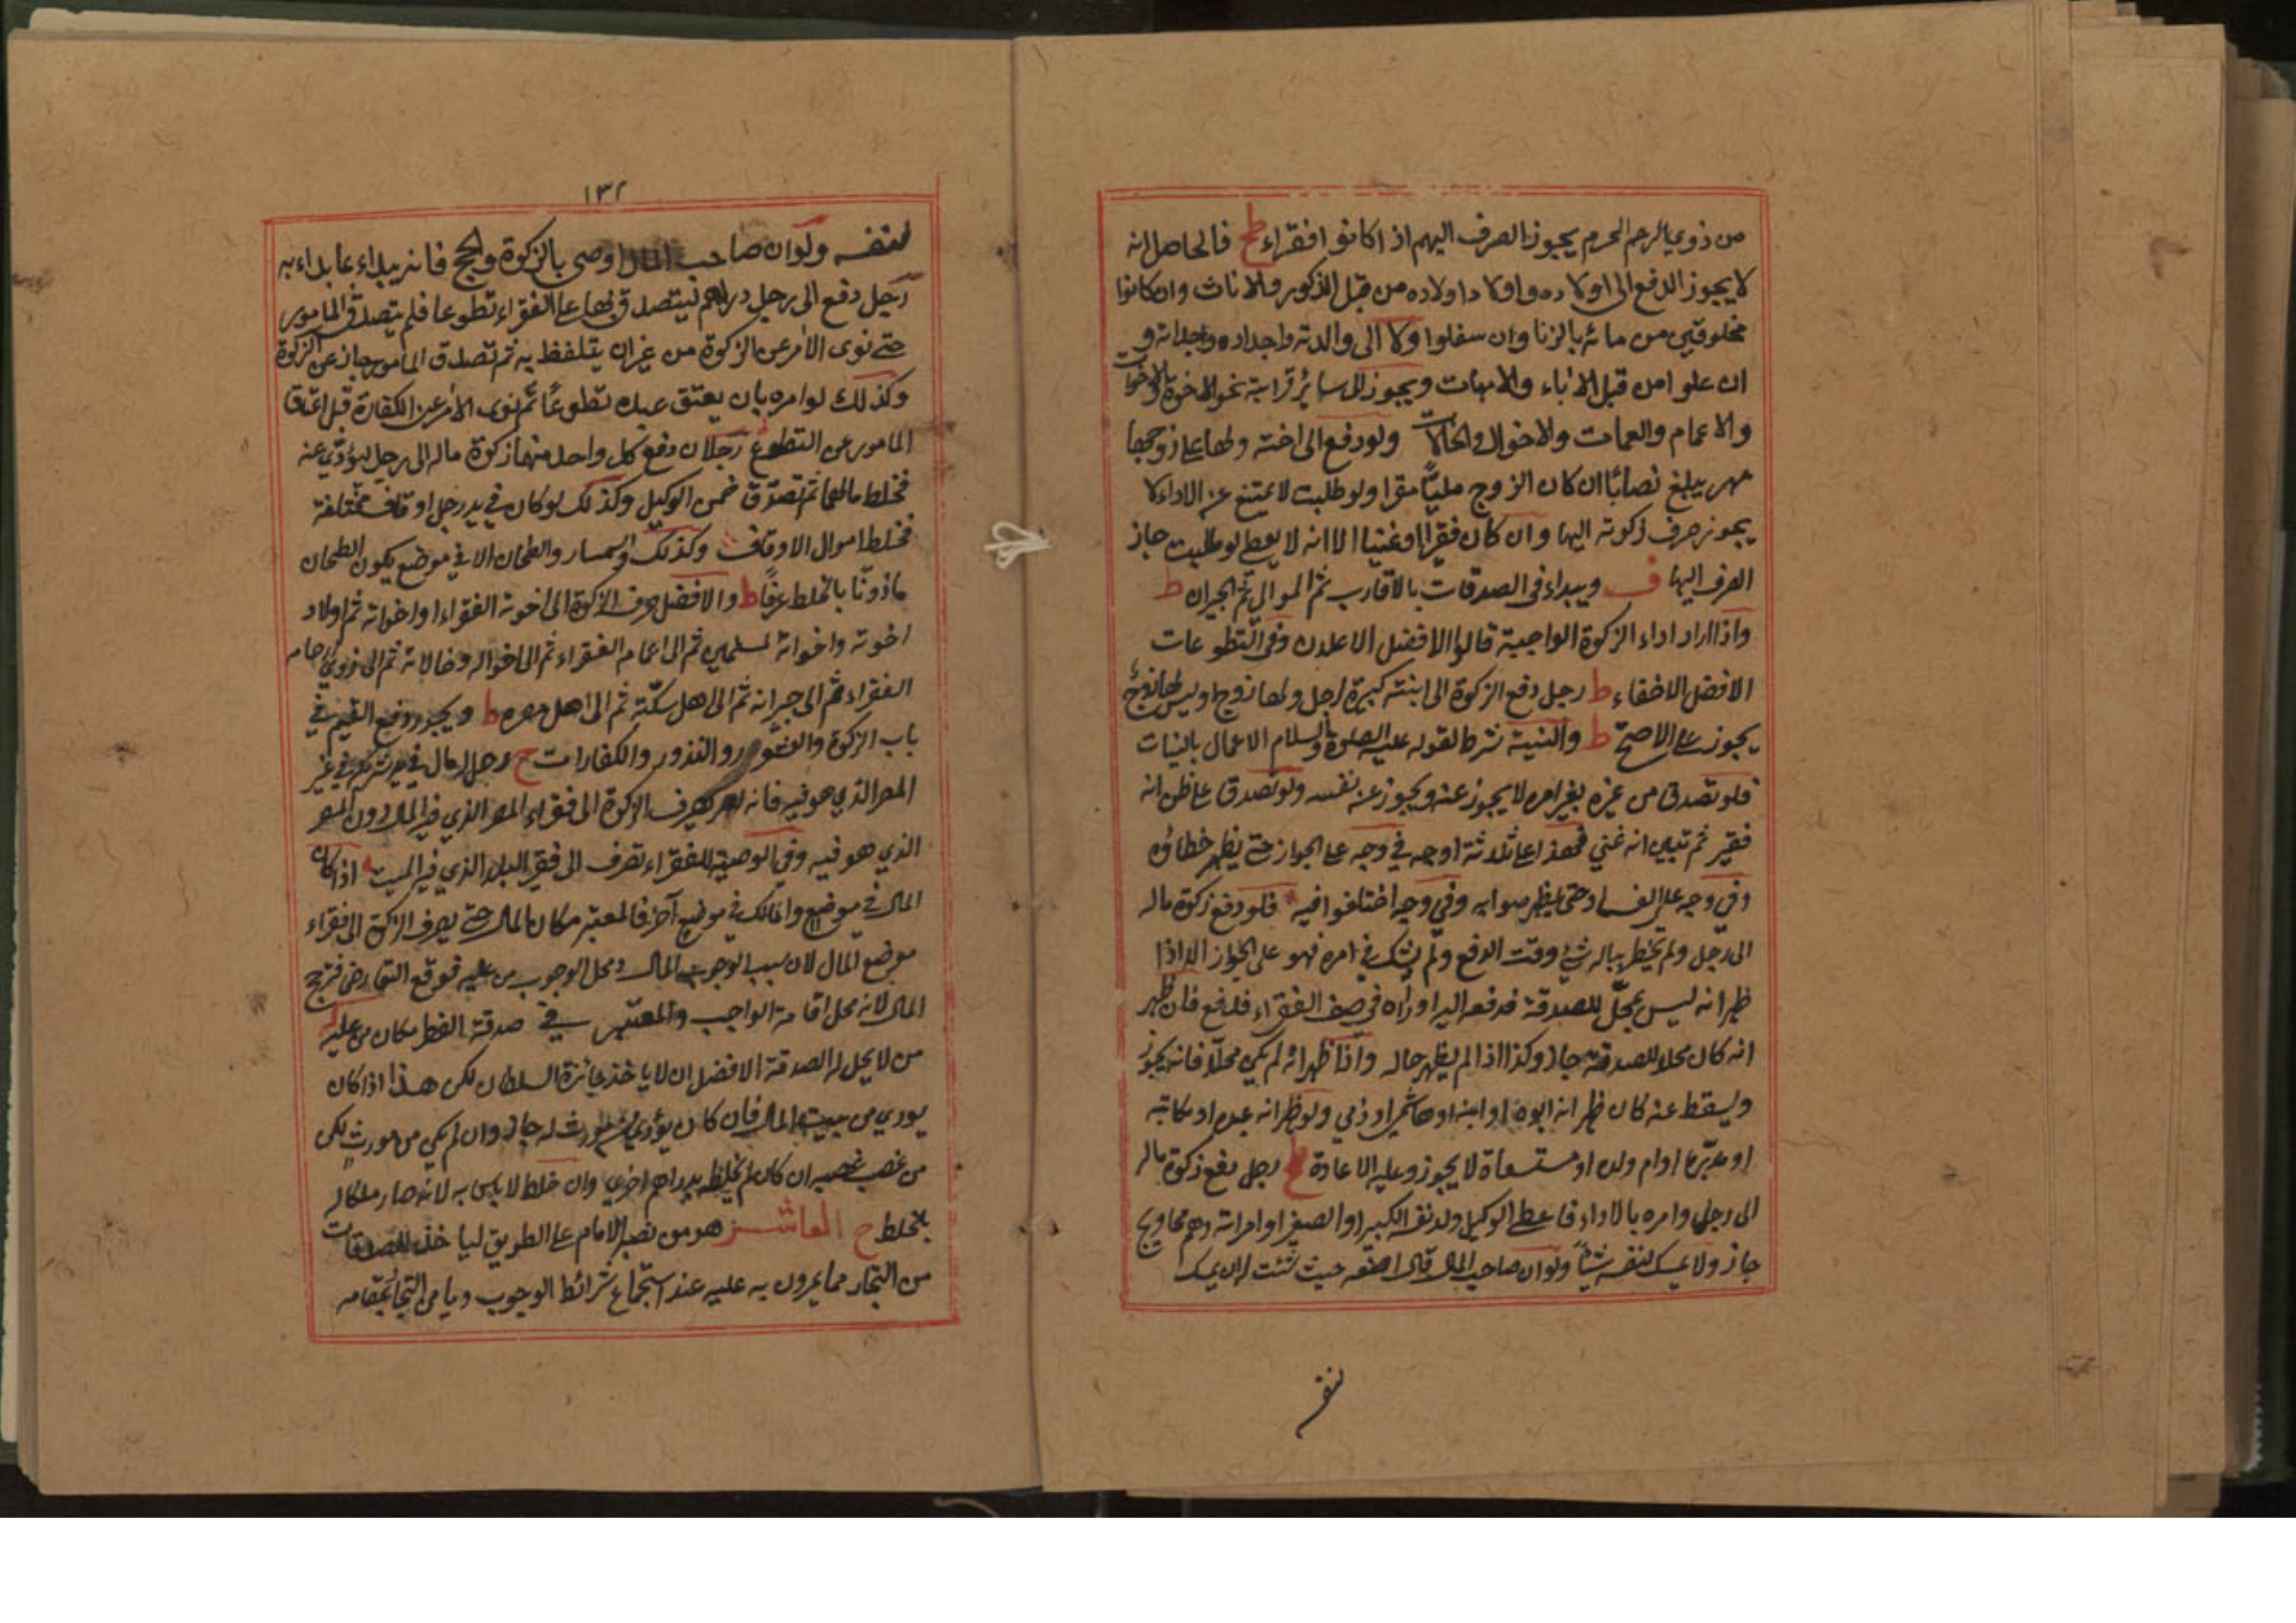 من ذوي الرحم المحرم يجوز الصرف اليهم اذا كانوا فقراء ط فالحاصل انه
لا يجوز الدفع الى اولاده واولاد اولاده من قبل الذكور والاناث وان كانوا
مخلوقين من مائه بالزنا وان سفلوا ولا الى والدته واجداده وجداته و
ان علوا من قبل الاباء والامهات ويجوز الى سائر قرابته نحو الاخوة والاخوات
والاعمام والعمات والاخوال والخالات ولو دفع الى اخته ولها على زوجها
مهر يبلغ نصابًا ان كان الزوج مليًا مقرا ولو طلبت لا يمتنع عن الاداء لا
يجوز صرف زكوته اليها وان كان فقيرا او غنيا الا انه لا يعطي لو طلبت جاز
الصرف اليها ف ويبداء في الصدقات بالاقارب ثم الموالي ثم الجيران ط
واذا اراد اداء الزكوة الواجبة قالوا الافضل الاعلان وفي التطوعات
الافضل الاخفاء ط رجل دفع الزكوة الى ابنته كبيرة رجل ولها زوج او ليس لها زوج
يجوز على الاصح ط والنية شرط لقوله عليه الصلوة والسلام الاعمال بالنيات
فلو تصدق من غيره بغير امره لا يجوز عنه ويجوز عن نفسه ولو تصدق على ظن انه
فقير ثم تبين انه غني فهذا على ثلاثة اوجه في وجه على الجواز حتى يظهر خطاؤه
وفي وجه على الفساد حتى يظهر صوابه وفي وجه اختلفوا فيه فلو دفع زكوة ماله
الى رجل ولم يخطر بباله شيء وقت الدفع ولم يشك في امره فهو على الجواز الا اذا
ظهر انه ليس بمحل للصدقة فدفعه اليه او راه في صف الفقراء فدفع فان ظهر
انه كان محلا للصدقة جاز وكذا اذا لم يظهر حاله واذا ظهر انه لم يكن محلا فانه يجوز
ويسقط عنه كان ظهر انه ابوه او ابنه او هاشمي او ذمي ولو ظهر انه عبده او مكاتبه
او مدبره او ام ولده او مستسعاة لا يجوز وعليه الاعادة رجل دفع زكوة ماله
الى رجل وامره بالاداء فاعطى الوكيل ولد نفسه الكبير او الصغير او امراته وهم محاويج
جاز ولا يمسك لنفسه شيئًا ولو ان صاحب المال قال اصنعه حيث شئت له ان يمسك
لنفسه
١٣٢
لنفسه ولو ان صاحب المال اوصى بالزكوة والحج فانه يبداء بما بداء به
رجل دفع الى رجل دراهم ليتصدق بها على الفقراء تطوعا فلم يتصدق المامور
حتى نوى الامر عن الزكوة من غير ان يتلفظ به ثم تصدق المامور جاز عن الزكوة
وكذلك لو امره بان يعتق عبده تطوعًا ثم نوى الامر عن الكفارة قبل اعتاق
المامور عن التطوع رجلان دفع كل واحد منهما زكوة ماله الى رجل ليؤدي عنه
فخلط مالهما ثم تصدق ضمن الوكيل وكذلك لو كان في يد رجل اوقاف مختلفة
فخلط اموال الاوقاف وكذلك السمسار والطحان الا في موضع يكون الطحان
ماذونًا بالخلط عرفًا ط والافضل صرف الزكوة الى اخوته الفقراء او اخواته ثم اولاد
اخوته واخواته المسلمين ثم الى اعمامه الفقراء ثم الى اخواله وخالاته ثم الى ذوي ارحامه
الفقراء ثم الى جيرانه ثم الى اهل سكته ثم الى اهل مصره ط ويجوز دفع القيم في
باب الزكوة والعشور والنذور والكفارات ح رجل له مال في يد شريكه في غير
المصر الذي هو فيه فانه يصرف الزكوة الى فقراء المصر الذي فيه المال دون المصر
الذي هو فيه وفي الوصية للفقراء تصرف الى فقراء البلد الذي فيه الميت اذا كان
المال في موضع والمالك في موضع آخر فالمعتبر مكان المال حتى يصرف الزكوة الى فقراء
موضع المال لان سبب الوجوب المال ومحل الوجوب من عليه فوقع التعارض فترجح
المال لانه محل اقامة الواجب والمعتبر في صدقة الفطر مكان من عليه
من لا يحل له الصدقة الافضل ان لا ياخذ جائزة السلطان لكن هذا اذا كان
يودي من بيت المال فان كان يؤدي من موروث له جاز وان لم يكن من موروث لكن
من غصب غصبه ان كان لم يخلط بدراهم اخرى وان خلط لا باس به لانه صار ملكا له
بالخلط ح العاشر هو من نصبه الامام على الطريق لياخذ الصدقات
من التجار مما يمرون به عليه عند استجماع شرائط الوجوب ويامن التجار بمقامه